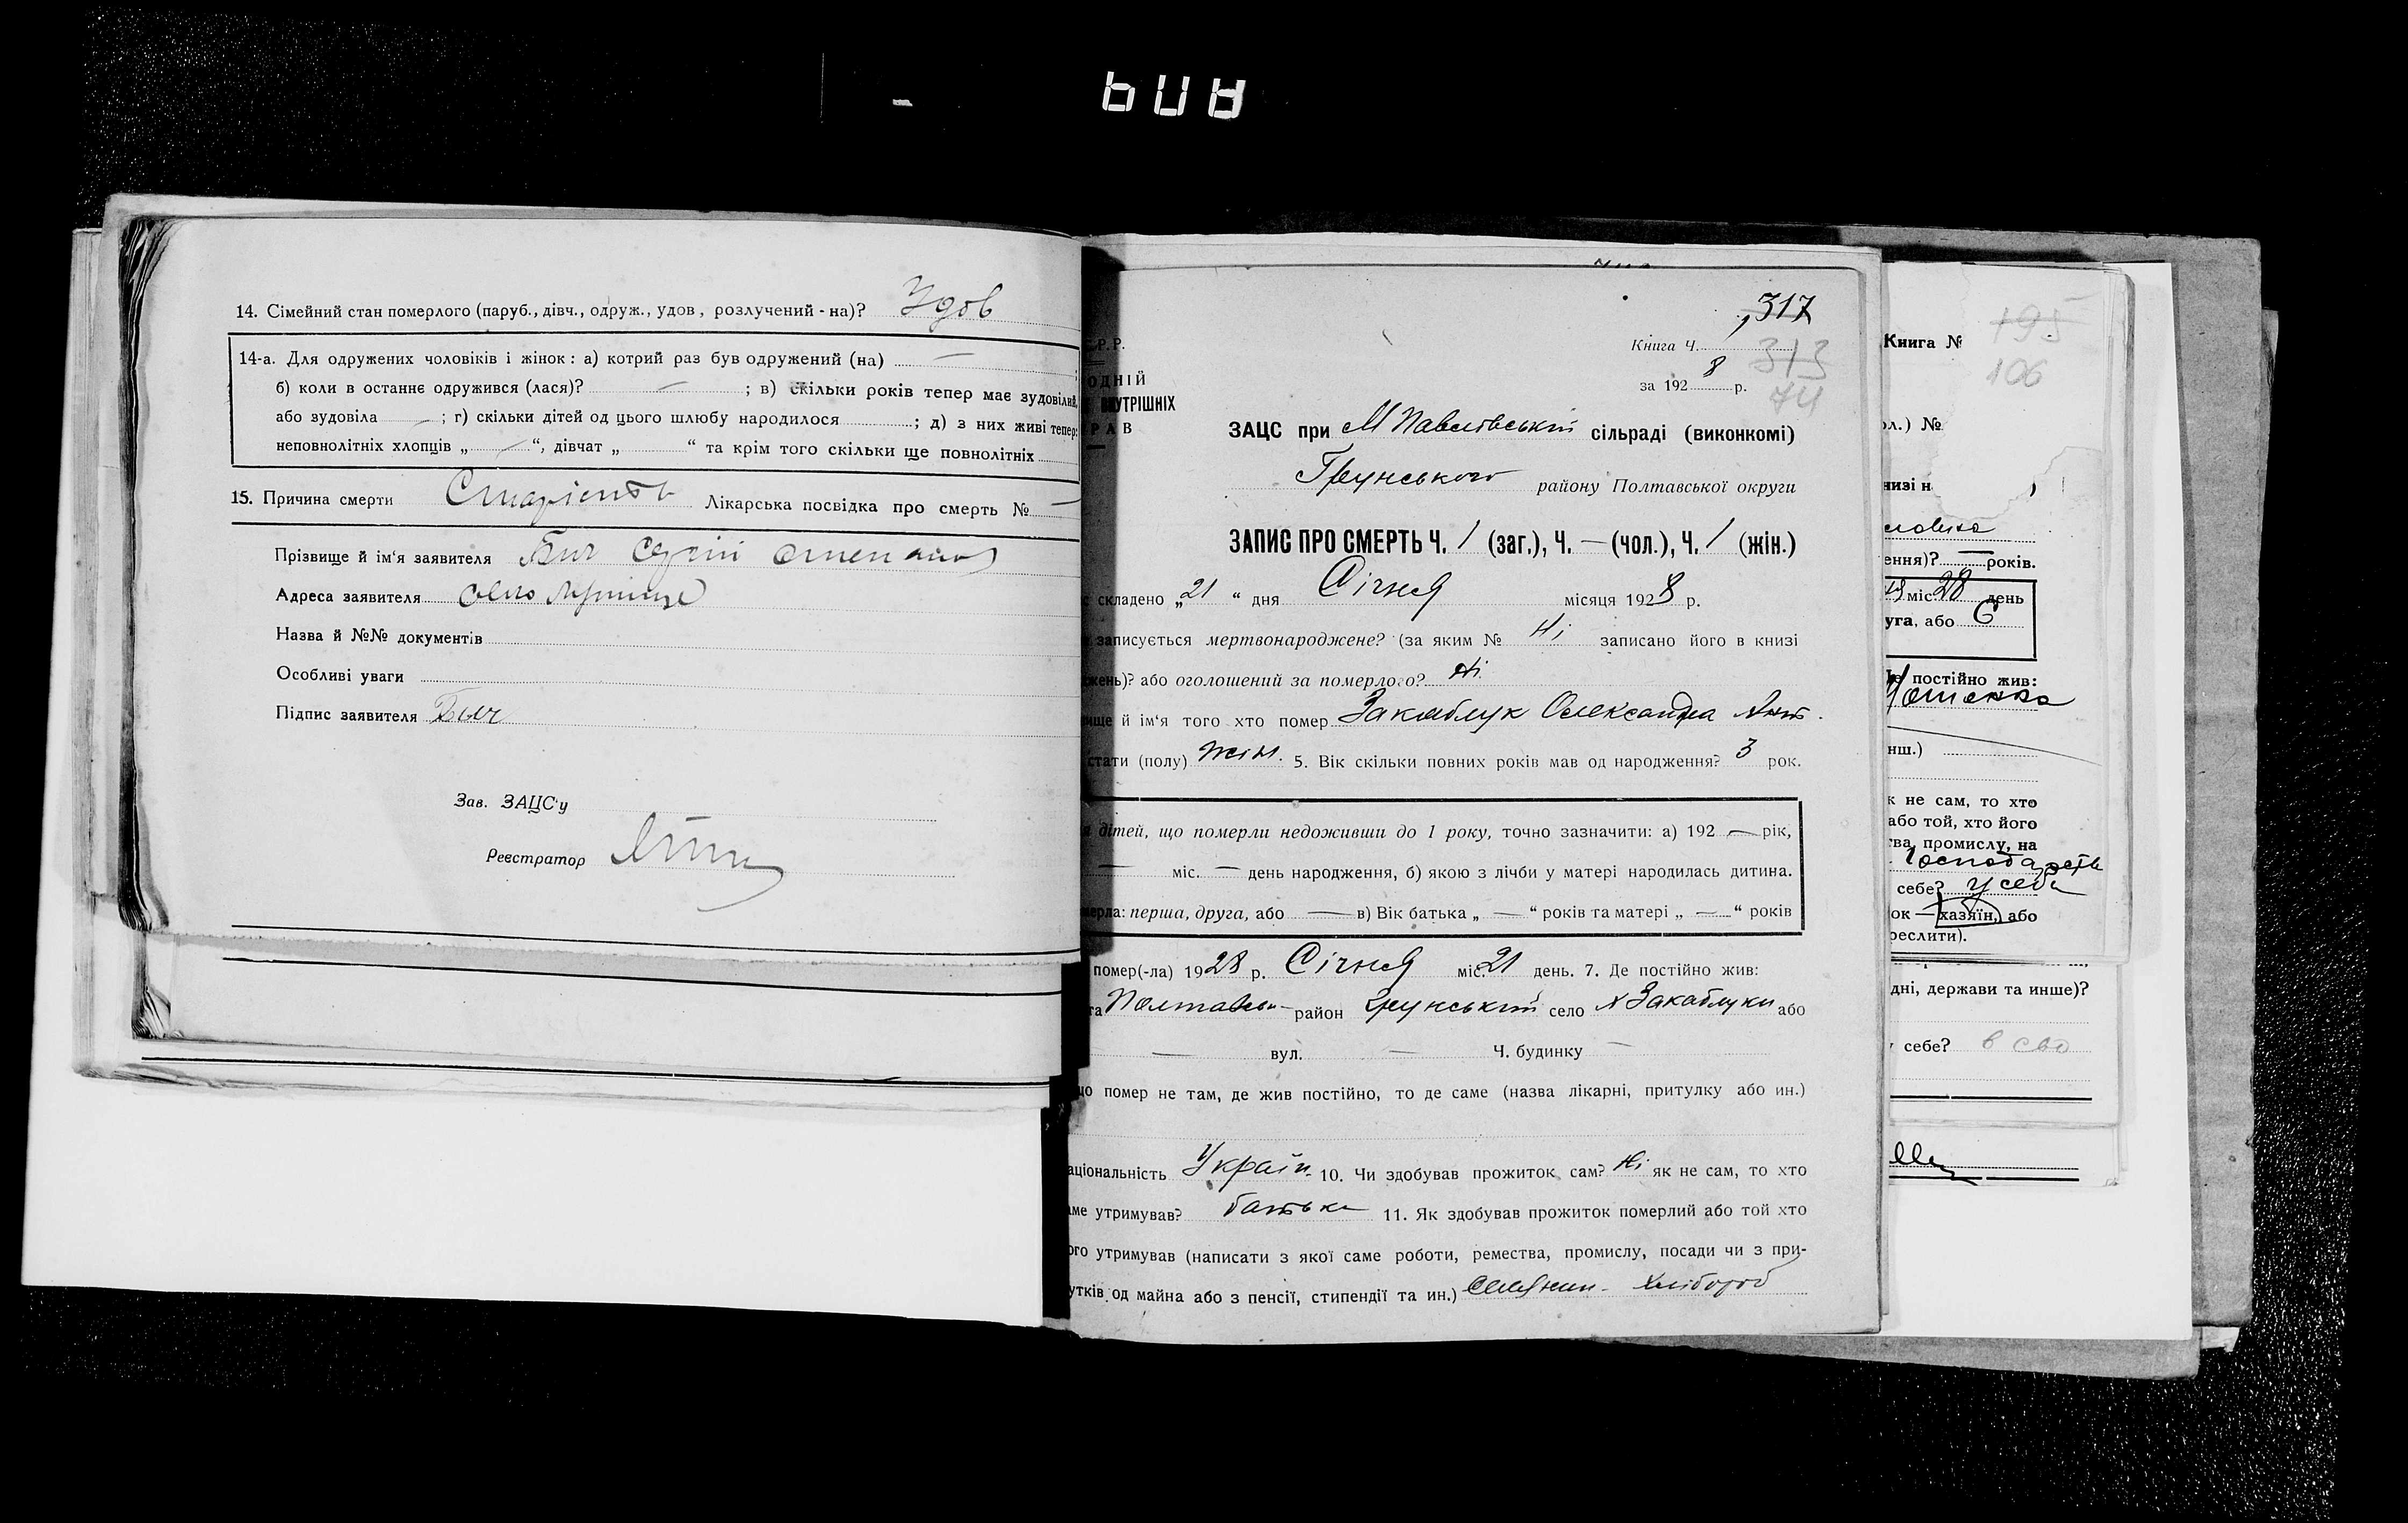 14. Сімейний стан померлого (паруб., дівч., одруж., удов, розлучений - на)? Удов
14-а. Для одружених чоловіків і жінок: а) котрий раз був одружений (на) —
б) коли в останнє одружився (лася)? — ; в) скільки років тепер має зудовілий,
або зудовіла — ; г) скільки дітей од цього шлюбу народилося ; д) з них живі тепер:
неповнолітніх хлопців „ — “, дівчат „ “ та крім того скільки ще повнолітніх
15. Причина смерти Лікарська посвідка про смерть № —
Прізвище й ім'я заявителя Бич Сергій
Адреса заявителя село
Назва й №№ документів
Особливі уваги
Підпис заявителя Бич
Зав. ЗАЦС'у
Реєстратор
317
Р.Р.
Книга Ч. 313
ОДНІЙ
за 1928 р. 74
УТРІШНІХ
РАВ
ЗАЦС при М Павлівській сільраді (виконкомі)
Грунського району Полтавської округи
ЗАПИС ПРО СМЕРТЬ Ч. 1 (заг.), Ч. — (чол.), Ч. 1 (жін.)
складено „21 “ дня Січня місяця 1928 р.
записується мертвонароджене? (за яким № Ні записано його в книзі
жень)? або оголошений за померлого? Ні
ище й ім'я того хто помер Закаблук Олександра Ант.
стати (полу) Жін. 5. Вік скільки повних років мав од народження? 3 рок.
дітей, що померли недоживши до 1 року, точно зазначити: а) 192 — рік,
— міс. — день народження, б) якою з лічби у матері народилась дитина.
мерла: перша, друга, або — в) Вік батька „ — “ років та матері „ — “ років
помер(-ла) 1928 р. Січня міс. 21 день. 7. Де постійно жив:
та Полтавськ район Грунський село х Закаблуки або
— вул. — Ч. будинку —
що помер не там, де жив постійно, то де саме (назва лікарні, притулку або ин.)
аціональність Україн. 10. Чи здобував прожиток сам? Ні як не сам, то хто
аме утримував? батько 11. Як здобував прожиток померлий або той хто
ого утримував (написати з якої саме роботи, ремества, промислу, посади чи з при-
утків од майна або з пенсії, стипендії та ин.) Селянин - хлібороб
195
Книга №
106
ол.) №
низі н
ення)? — років.
міс. 28 день
уга, або 6
Де постійно жив:
нш.)
к не сам, то хто
або той, хто його
тва, промислу, на
господарств
себе? у себе
ок — хазяїн, або
реслити).
дні, держави та инше)?
у себе? в сво